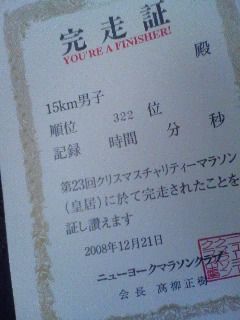 完走証
YOU'RE A FINISHER!
殿
15km男子
順位 322 位
記録 時間 分 秒
第23回クリスマスチャリティーマラソン
(皇居)に於て完走されたことを
証し讃えます
2008年12月21日
ニューヨークマラソンクラブ
会長 高柳正樹